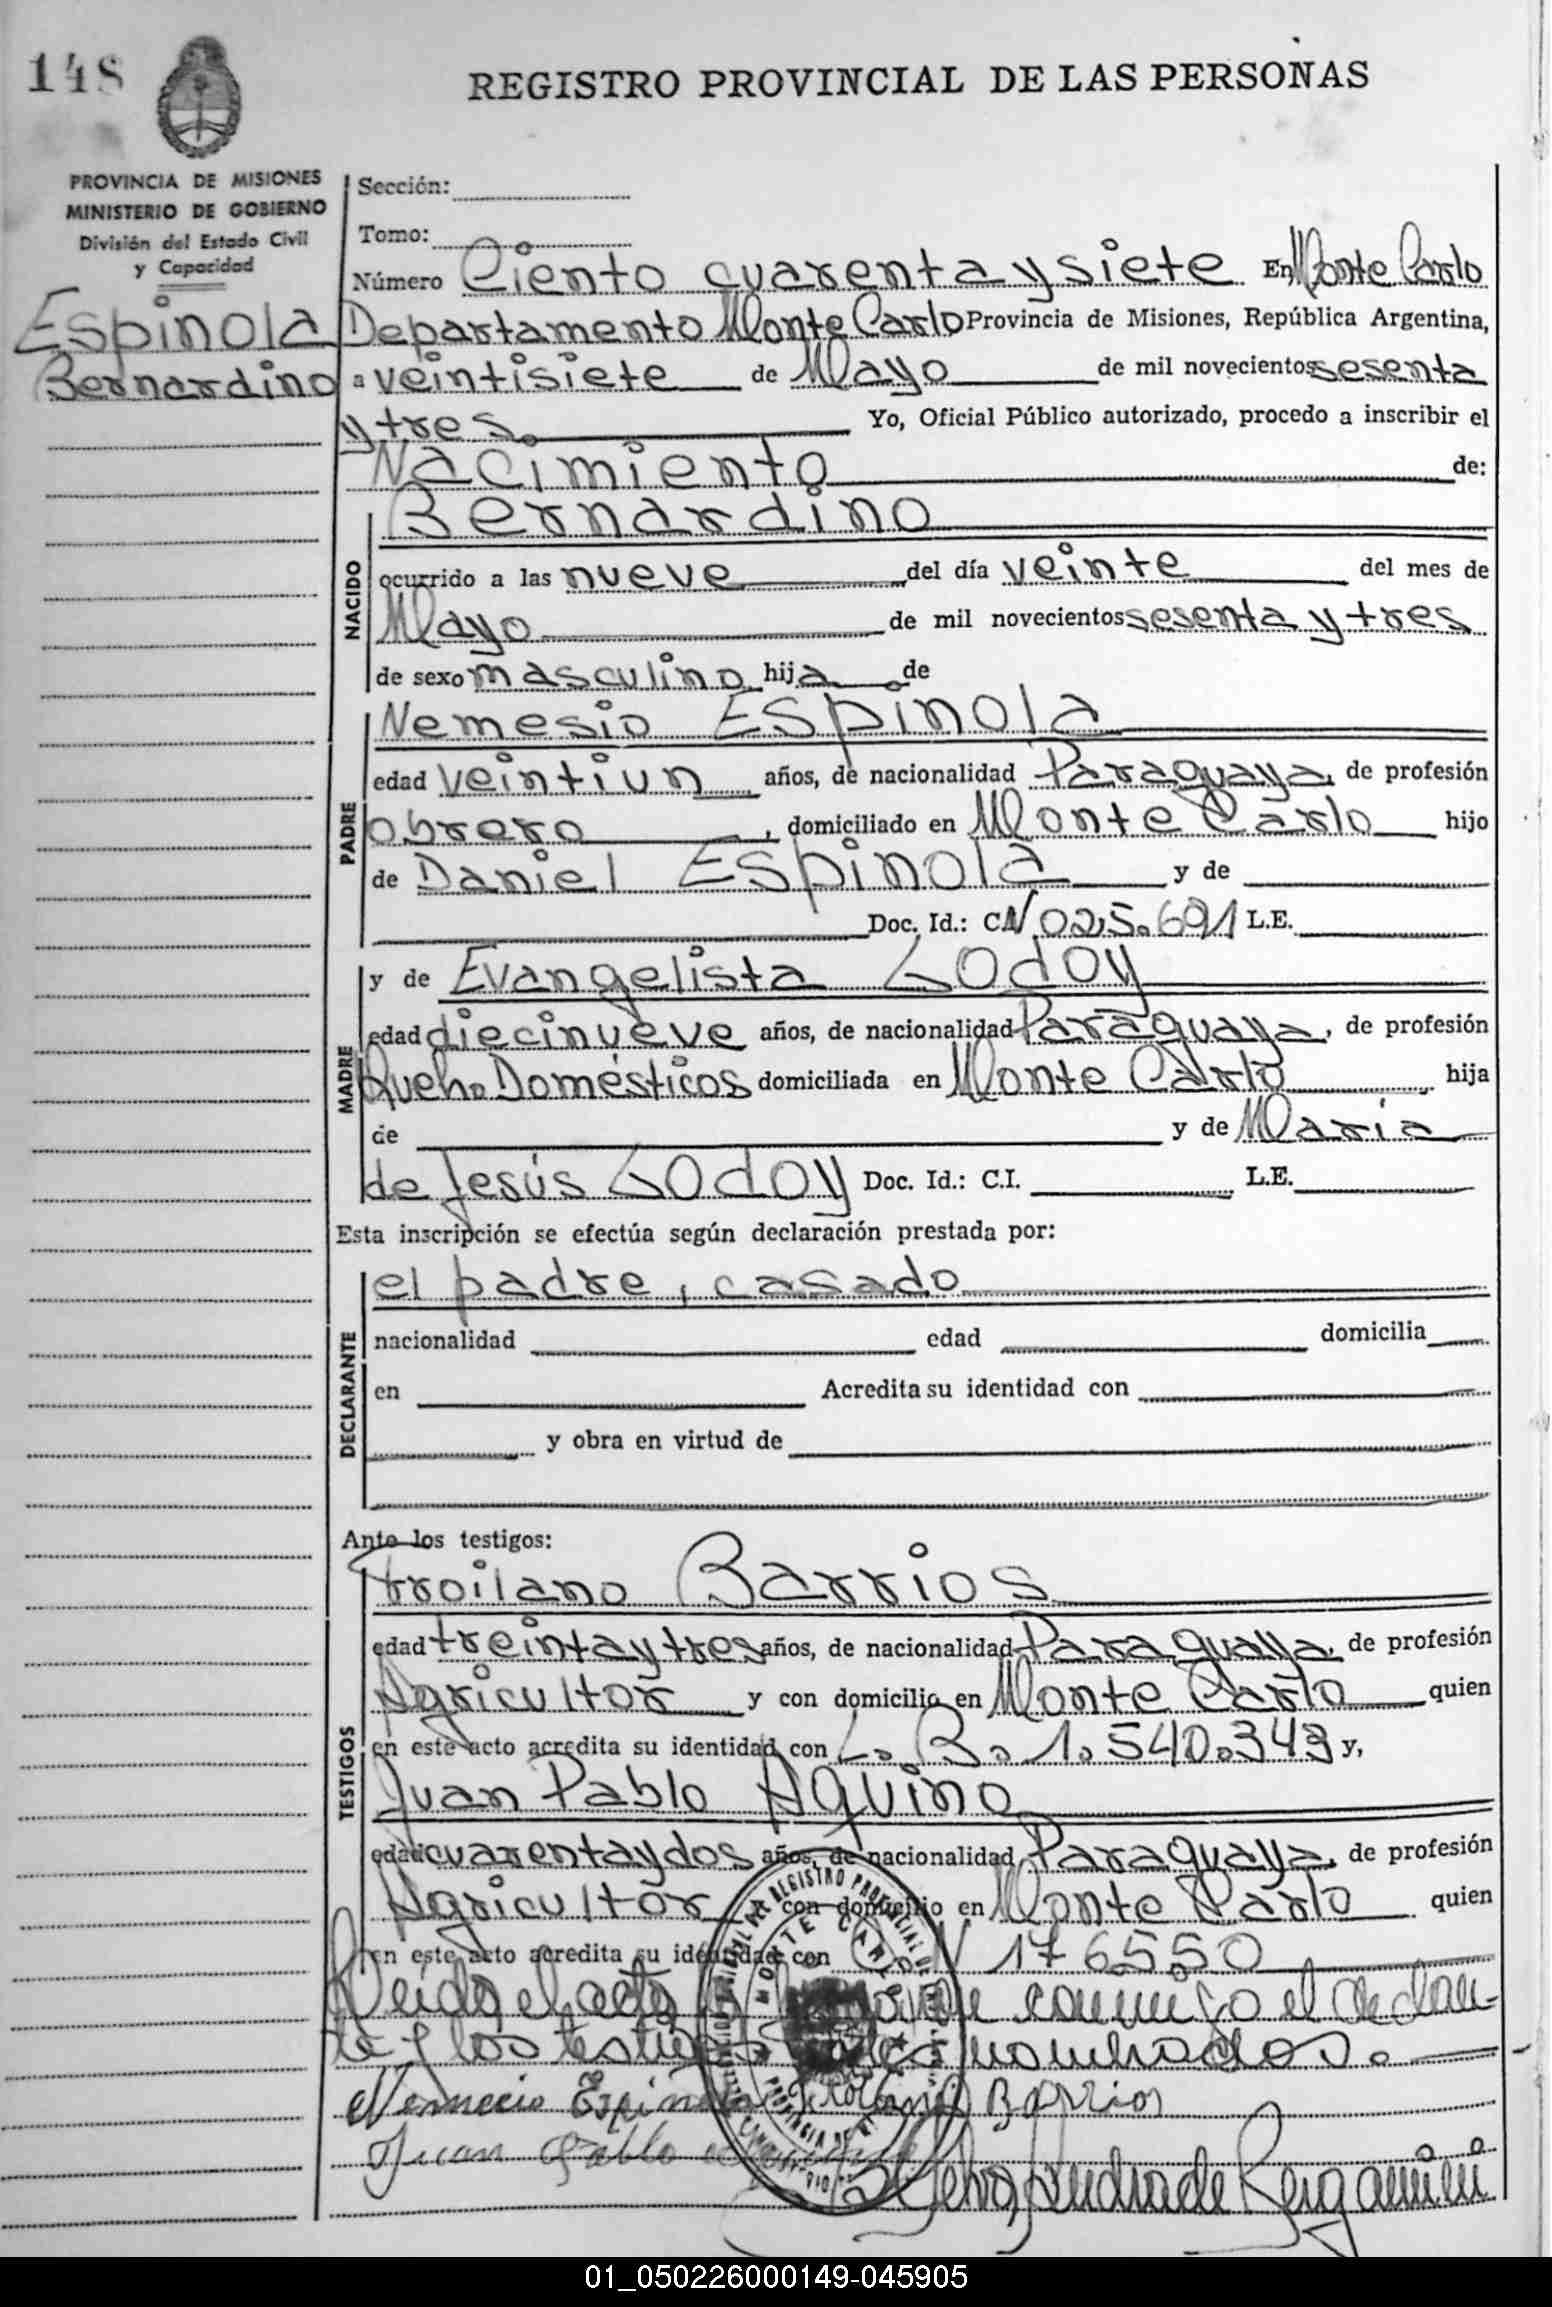 148
REGISTRO PROVINCIAL DE LAS PERSONAS
PROVINCIA DE MISIONES
MINISTERIO DE GOBIERNO
División del Estado Civil
y Capacidad
Espinola
Bernardino
Sección:
Tomo:
Número Ciento cuarenta y siete En Monte Carlo
Departamento Monte Carlo Provincia de Misiones, República Argentina,
a veintisiete de Mayo de mil novecientos sesenta
y tres. Yo, Oficial Público autorizado, procedo a inscribir el
Nacimiento de:
NACIDO
Bernardino
ocurrido a las nueve del día veinte del mes de
Mayo de mil novecientos sesenta y tres
de sexo masculino hija de
PADRE
Nemesio Espinola
edad veintiun años, de nacionalidad Paraguaya, de profesión
obrero, domiciliado en Monte Carlo hijo
de Daniel Espinola y de
Doc. Id.: CN 025.691 L.E.
MADRE
y de Evangelista Godoy
edad diecinueve años, de nacionalidad Paraguaya, de profesión
Queh. Domésticos domiciliada en Monte Carlo, hija
de y de María
de Jesús Godoy Doc. Id.: C.I. L.E.
Esta inscripción se efectúa según declaración prestada por:
DECLARANTE
el padre, casado
nacionalidad edad domicilia
en Acredita su identidad con
y obra en virtud de
Ante los testigos:
TESTIGOS
troilano Barrios
edad treinta y tres años, de nacionalidad Paraguaya, de profesión
Agricultor y con domicilio en Monte Carlo quien
en este acto acredita su identidad con L. B. 1.540.343 y,
Juan Pablo Aquino
edad cuarenta y dos años, de nacionalidad Paraguaya, de profesión
Agricultor con domicilio en Monte Carlo quien
en este acto acredita su identidad con N 176550
Leida el acta conmigo el declaran-
te y los testigos nombrados.
Nemecio Espinola Troilano Barrios
Juan Pablo
Andrade Bergamini
REGISTRO PROVINCIAL DE
MONTE CARLO
PROVINCIA DE MI
01_050226000149-045905